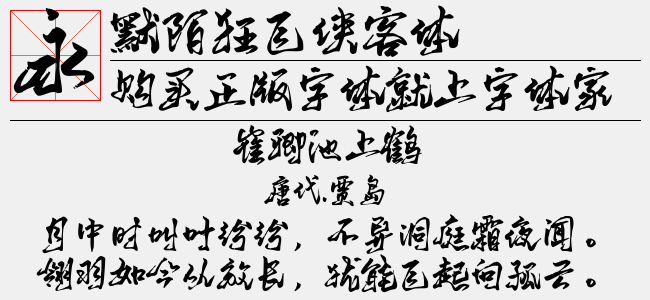 永
默陌狂飞侠客体
购买正版字体就上字体家
崔卿池上鹤
唐代.贾岛
月中时叫叶纷纷，不异洞庭霜夜闻。
翎羽如今从放长，犹能飞起向孤云。